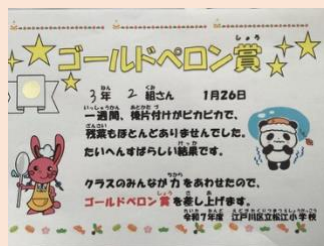 ゴールドペロン賞
3年 2組さん 1月26日
一週間、後片付けがピカピカで、
残菜もほとんどありませんでした。
たいへんすばらしい結果です。
クラスのみんなが力をあわせたので、
ゴールドペロン賞を差し上げます。
令和7年度 江戸川区立松江小学校